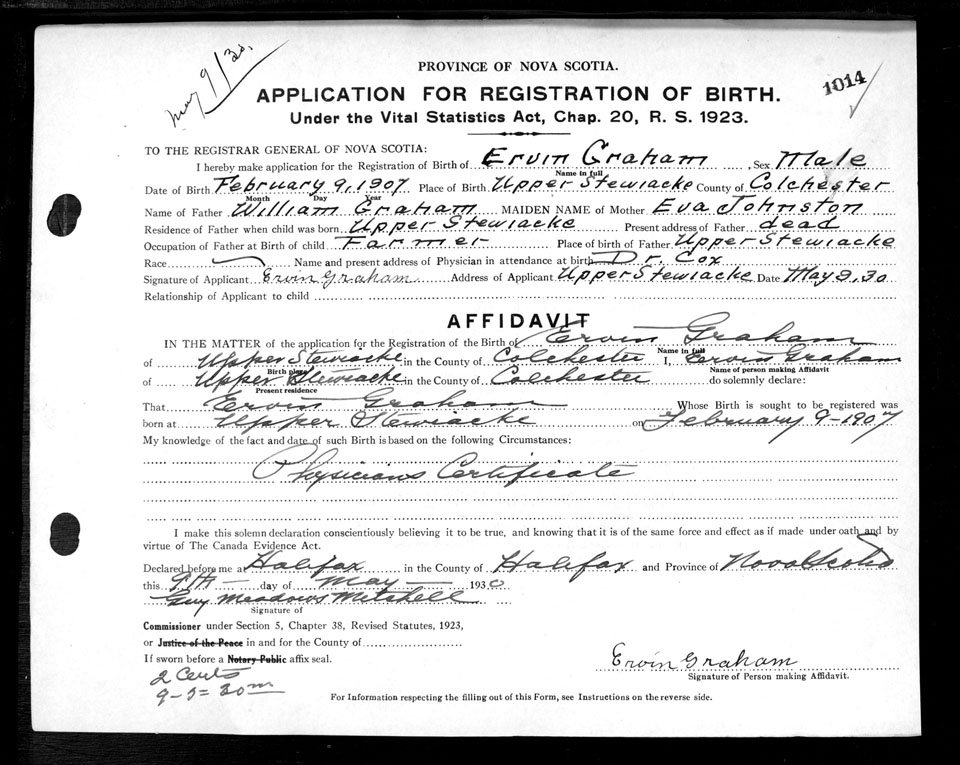 May 9/30.
PROVINCE OF NOVA SCOTIA.
1014
APPLICATION FOR REGISTRATION OF BIRTH.
Under the Vital Statistics Act, Chap. 20, R. S. 1923.
TO THE REGISTRAR GENERAL OF NOVA SCOTIA:
I hereby make application for the Registration of Birth of Ervin Graham Sex Male
Name in full
Date of Birth February 9, 1907 Place of Birth Upper Stewiacke County of Colchester
Month Day Year
Name of Father William Graham MAIDEN NAME of Mother Eva Johnston
Residence of Father when child was born Upper Stewiacke Present address of Father dead
Occupation of Father at Birth of child Farmer Place of birth of Father Upper Stewiacke
Race Name and present address of Physician in attendance at birth Dr. Cox
Signature of Applicant Ervin Graham Address of Applicant Upper Stewiacke Date May 9, 30
Relationship of Applicant to child
AFFIDAVIT
IN THE MATTER of the application for Registration of the Birth of Ervin Graham
Name in full
of Upper Stewiacke in the County of Colchester I, Ervin Graham
Birth place Name of person making Affidavit
of Upper Stewiacke in the County of Colchester do solemnly declare:
Present residence
That Ervin Graham Whose Birth is sought to be registered was
born at Upper Stewiacke on February 9-1907
My knowledge of the fact and date of such Birth is based on the following Circumstances:
Physicians Certificate
I make this solemn declaration conscientiously believing it to be true, and knowing that it is of the same force and effect as if made under oath and by
virtue of The Canada Evidence Act.
Declared before me at Halifax in the County of Halifax and Province of Nova Scotia
this 9th day of May 1930
Guy Meadows Mitchell
Signature of
Commissioner under Section 5, Chapter 38, Revised Statutes, 1923,
or Justice of the Peace in and for the County of
If sworn before a Notary Public affix seal.
2 Certs
9-5-30
Ervin Graham
Signature of Person making Affidavit.
For Information respecting the filling out of this Form, see Instructions on the reverse side.